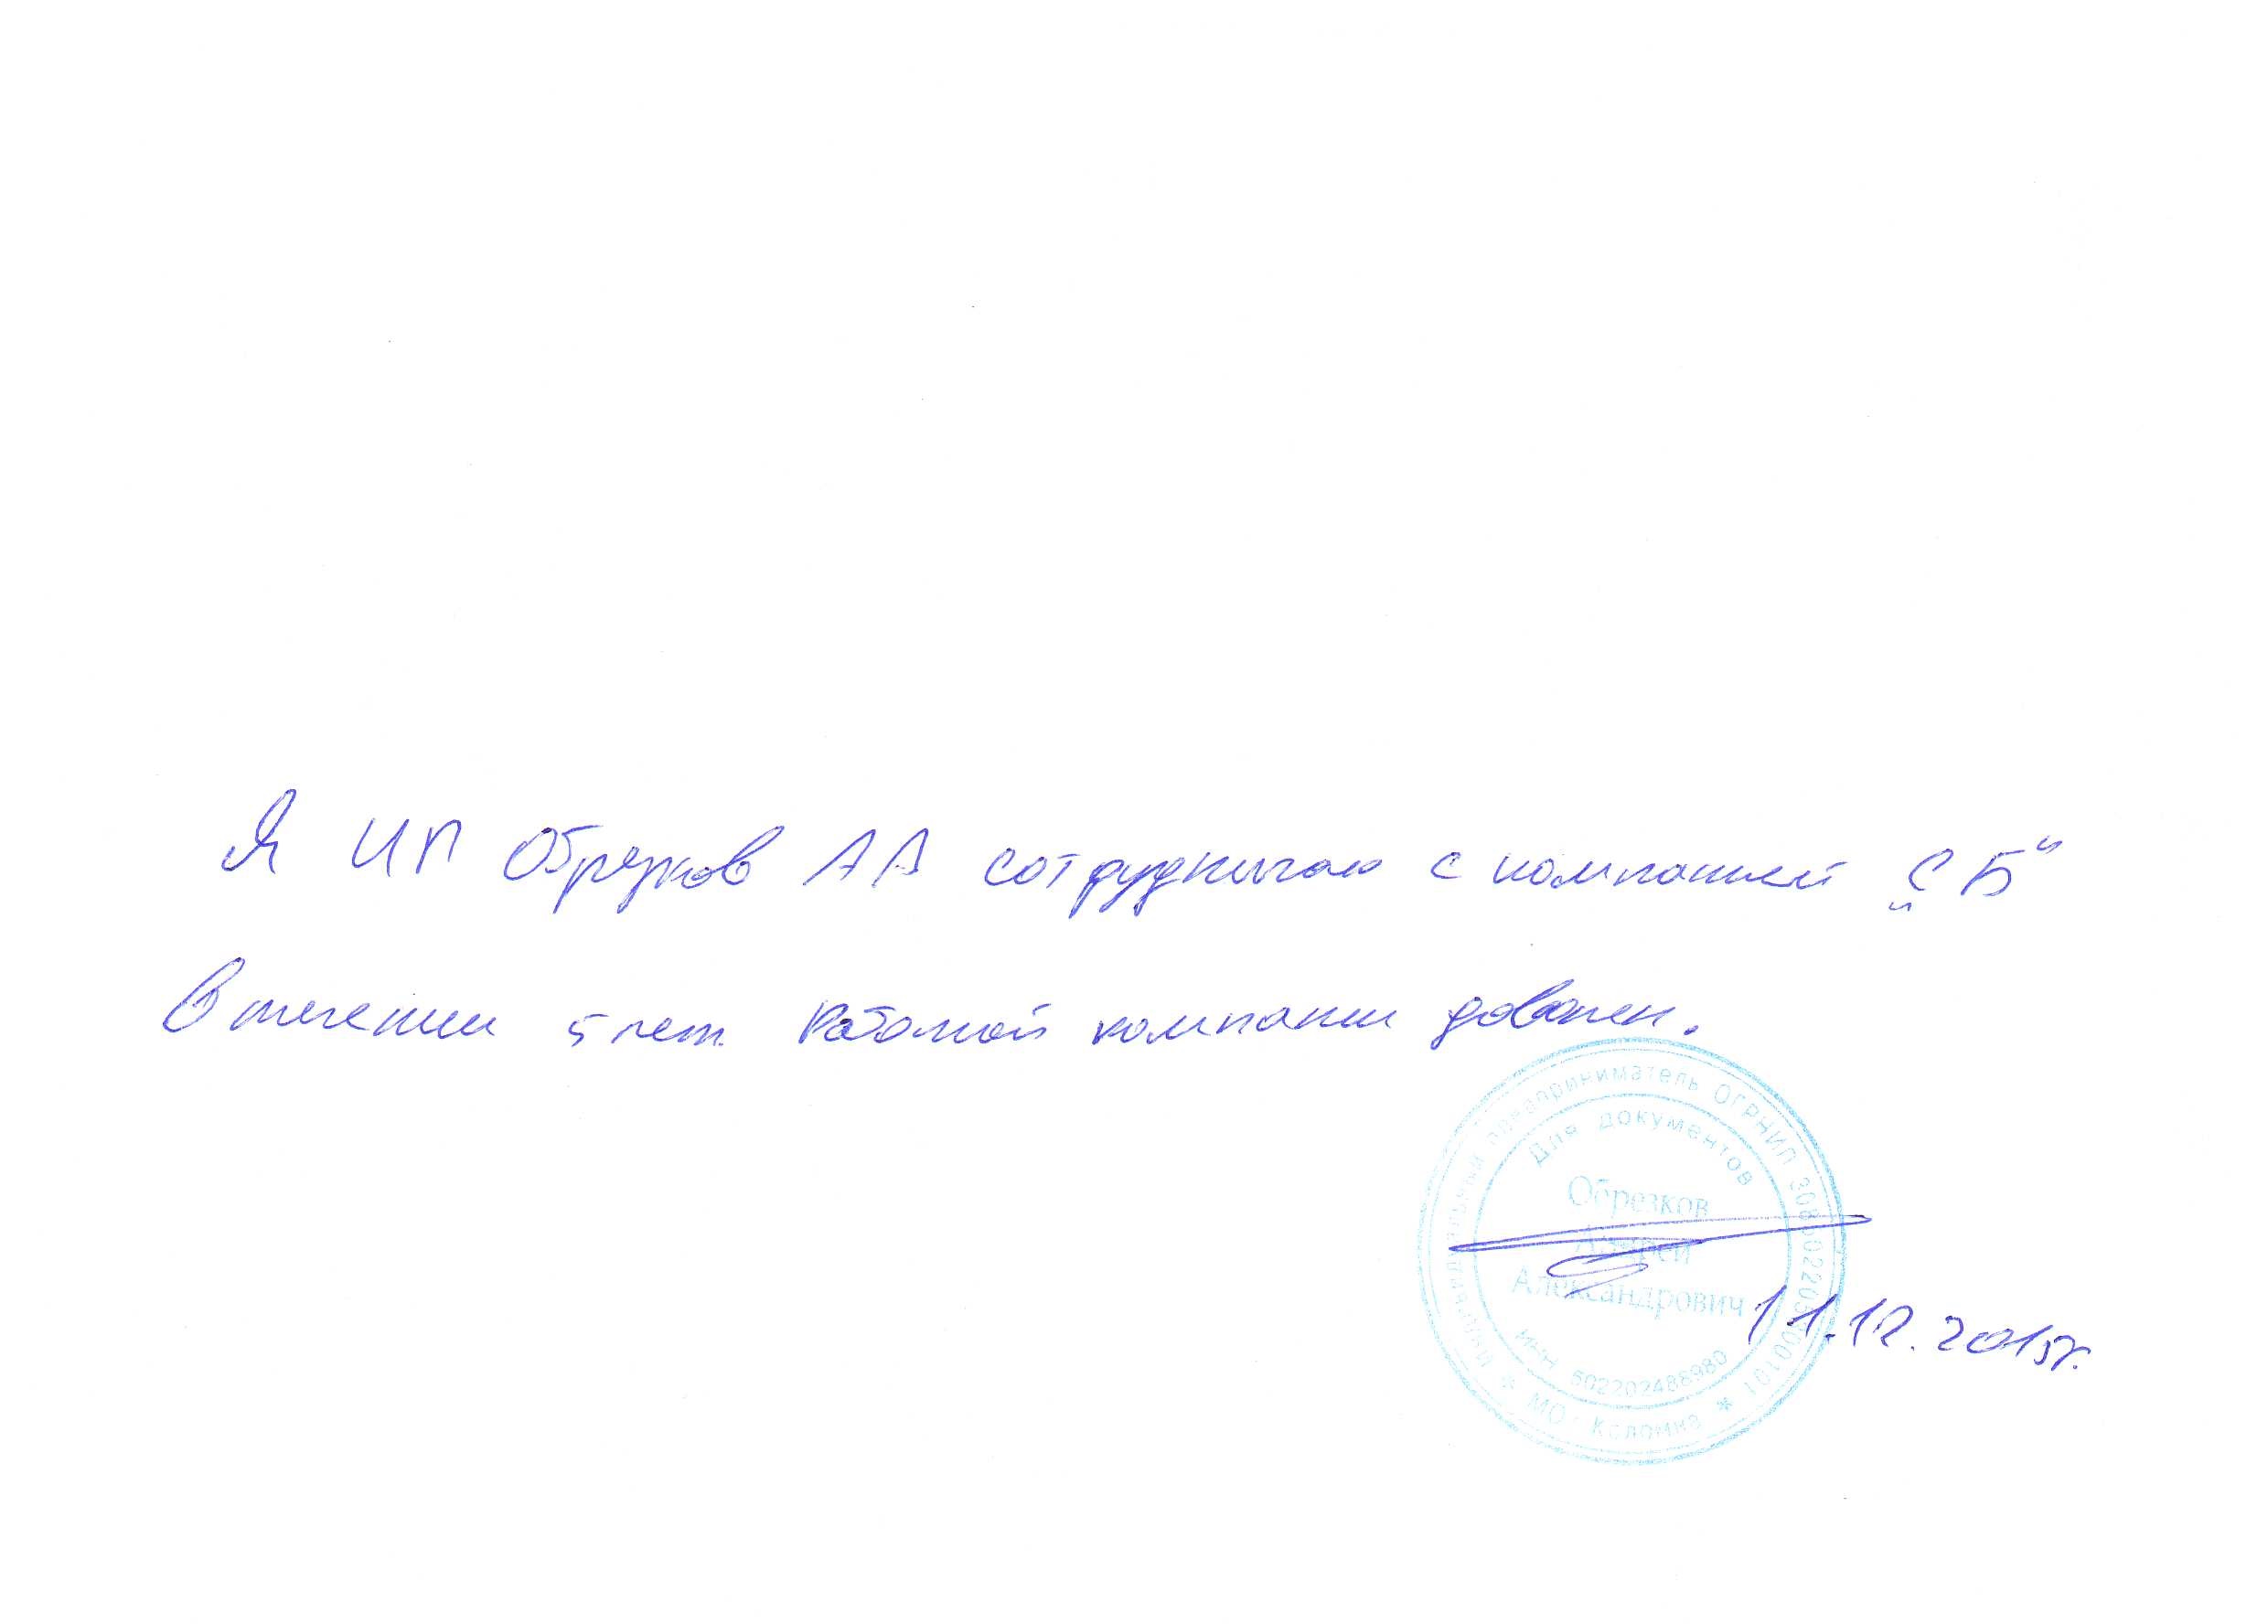 Я ИП Обрезков АА сотрудничаю с компанией „СБ“
В течении 5 лет. Работой компании доволен.
Индивидуальный предприниматель ОГРНИП
Для документов
Обрезков
Андрей
Александрович
ИНН
* МО г Коломна *
11.12.2015г.